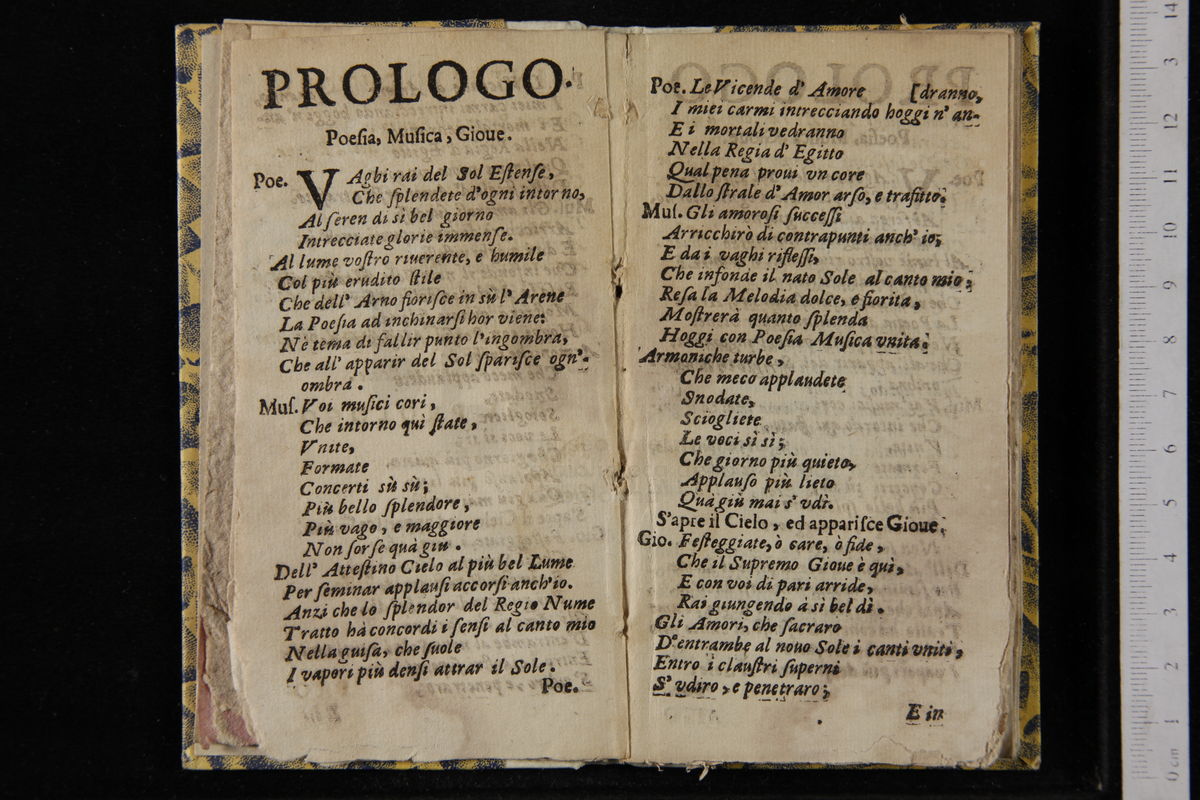 PROLOGO.
Poeſia, Muſica, Gioue.
Poe. VAghi rai del Sol Eſtenſe,
Che ſplendete d'ogni intorno,
Al ſeren di sì bel giorno
Intrecciate glorie immenſe.
Al lume voſtro riuerente, e humile
Col più erudito ſtile
Che dell' Arno fioriſce in sù l' Arene
La Poeſia ad inchinarſi hor viene:
Nè tema di fallir punto l'ingombra,
Che all' apparir del Sol ſpariſce ogn'-
ombra.
Muſ. Voi muſici cori,
Che intorno quì ſtate,
Vnite,
Formate
Concerti sù sù;
Più bello ſplendore,
Più vago, e maggiore
Non ſorſe quà giu.
Dell' Atteſtino Cielo al più bel Lume
Per ſeminar applauſi accorſi anch'io.
Anzi che lo ſplendor del Regio Nume
Tratto hà concordi i ſenſi al canto mio
Nella guiſa, che ſuole
I vapori più denſi attrar il Sole.
Poe.
Poe. Le Vicende d' Amore [dranno,
I miei carmi intrecciando hoggi n' an-
E i mortali vedranno
Nella Regia d' Egitto
Qual pena proui vn core
Dallo ſtrale d' Amor arſo, e trafitto.
Muſ. Gli amoroſi ſucceſſi
Arricchirò di contrapunti anch' io;
E da i vaghi rifleſſi,
Che infonde il nato Sole al canto mio;
Reſa la Melodia dolce, e fiorita,
Moſtrerà quanto ſplenda
Hoggi con Poeſia Muſica vnita.
Armoniche turbe,
Che meco applaudete
Snodate,
Sciogliete
Le voci sì sì;
Che giorno più quieto,
Applauſo più lieto
Quà giù mai s' vdì.
S'apre il Cielo, ed appariſce Gioue.
Gio. Feſteggiate, ò care, ò fide,
Che il Supremo Gioue è quì,
E con voi di pari arride,
Rai giungendo à sì bel dì.
Gli Amori, che ſacraro
D'entrambe al nouo Sole i canti vniti,
Entro i clauſtri ſuperni
S' vdiro, e penetraro;
E in
0 cm 1 2 3 4 5 6 7 8 9 10 11 12 3 14